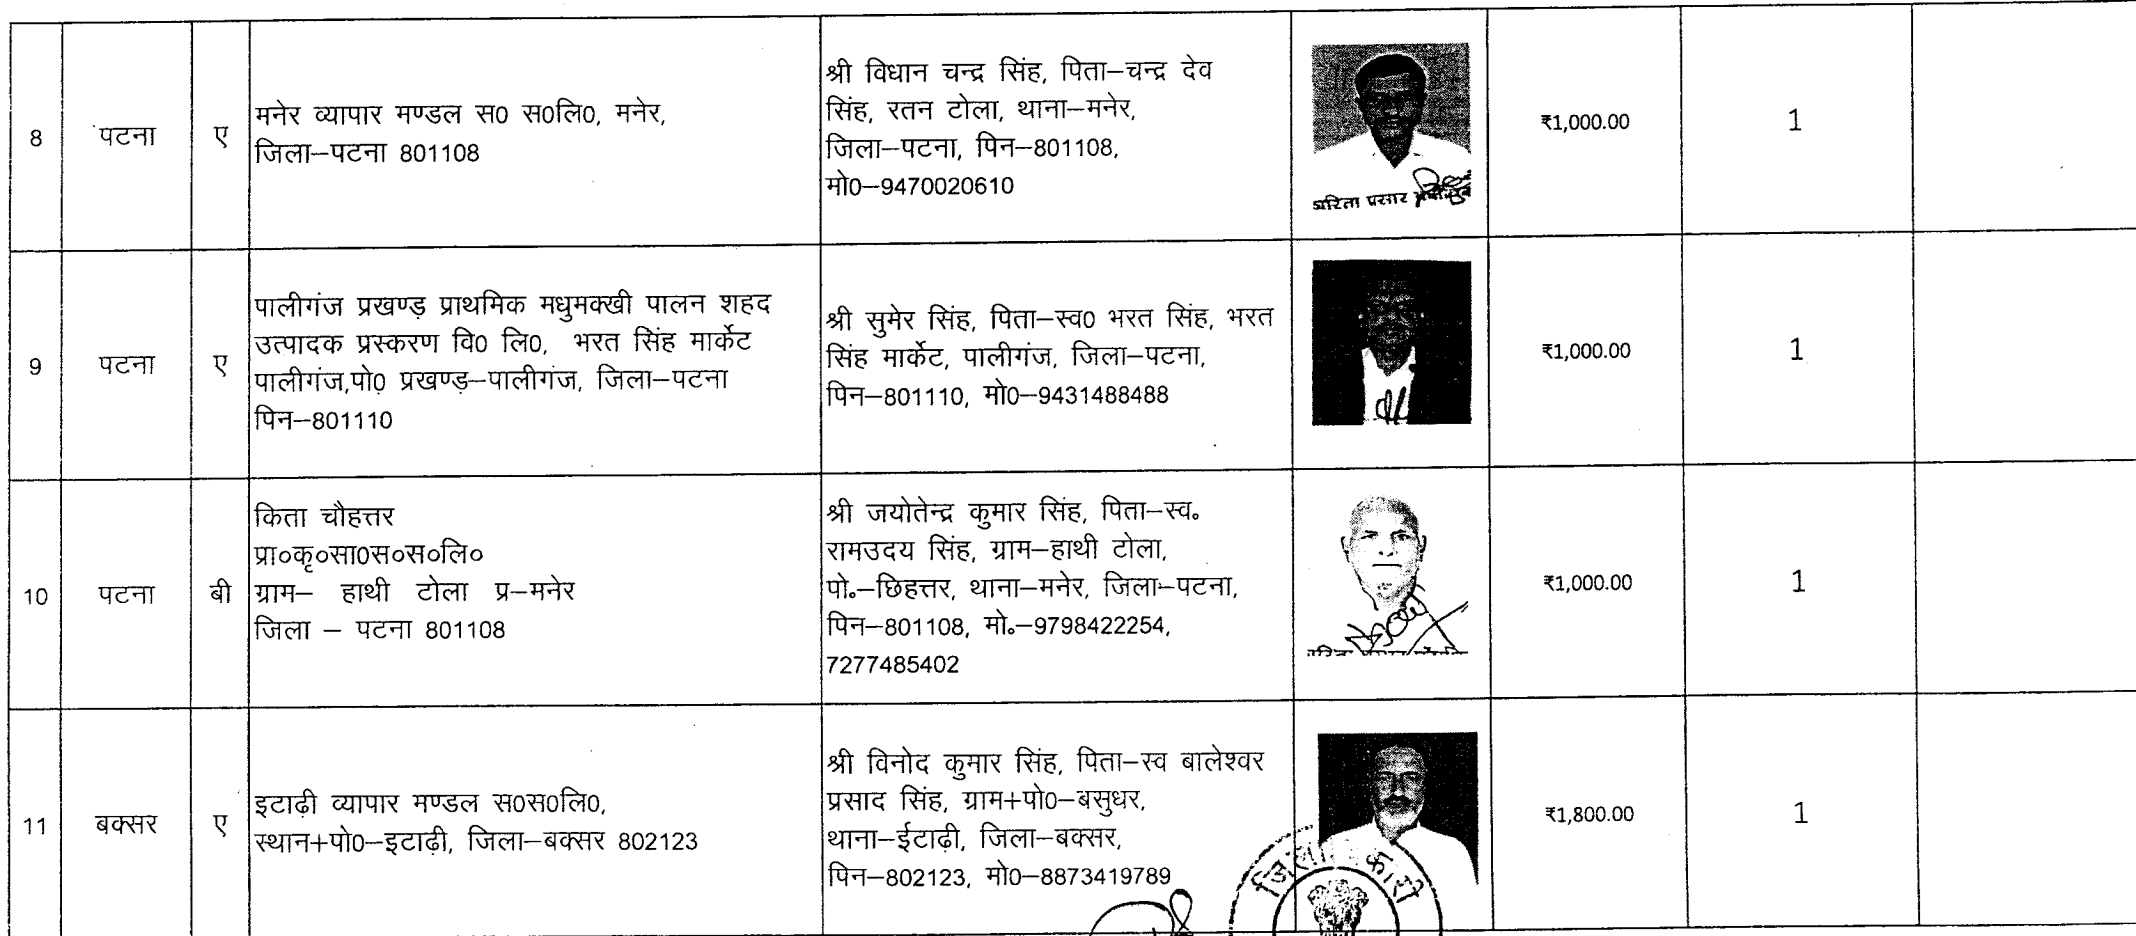 8
पटना
ए
मनेर व्यापार मण्डल स0 स0लि0, मनेर,
जिला–पटना 801108
श्री विधान चन्द्र सिंह, पिता–चन्द्र देव
सिंह, रतन टोला, थाना–मनेर,
जिला–पटना, पिन–801108,
मो0–9470020610
₹1,000.00
1
9
पटना
ए
पालीगंज प्रखण्ड़ प्राथमिक मधुमक्खी पालन शहद
उत्पादक प्रस्करण वि0 लि0, भरत सिंह मार्केट
पालीगंज,पो0 प्रखण्ड़–पालीगंज, जिला–पटना
पिन–801110
श्री सुमेर सिंह, पिता–स्व0 भरत सिंह, भरत
सिंह मार्केट, पालीगंज, जिला–पटना,
पिन–801110, मो0–9431488488
₹1,000.00
1
10
पटना
बी
किता चौहत्तर
प्रा०कृ०सा0स०स०लि०
ग्राम– हाथी टोला प्र–मनेर
जिला – पटना 801108
श्री जयोतेन्द्र कुमार सिंह, पिता–स्व॰
रामउदय सिंह, ग्राम–हाथी टोला,
पो॰–छिहत्तर, थाना–मनेर, जिला–पटना,
पिन–801108, मो॰–9798422254,
7277485402
₹1,000.00
1
11
बक्सर
ए
इटाढ़ी व्यापार मण्डल स0स0लि0,
स्थान+पो0–इटाढ़ी, जिला–बक्सर 802123
श्री विनोद कुमार सिंह, पिता–स्व बालेश्वर
प्रसाद सिंह, ग्राम+पो0–बसुधर,
थाना–ईटाढ़ी, जिला–बक्सर,
पिन–802123, मो0–8873419789
₹1,800.00
1